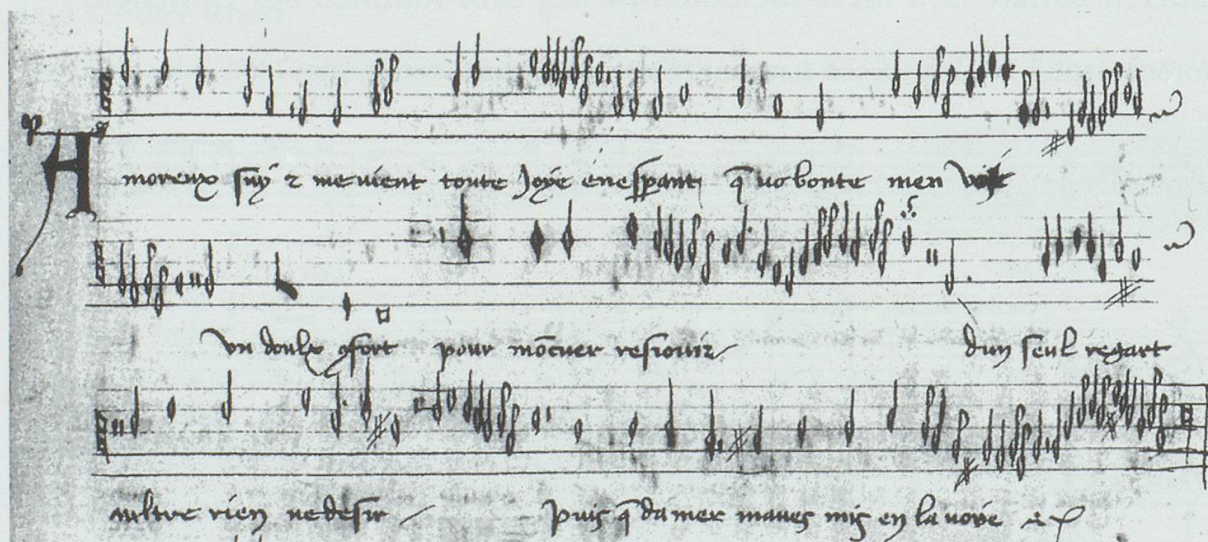 Amoreux suy & me vient toute joye en esp̱ant q̄ vo bonte men
vn doulx ꝯfort pour mōcuer resiouir dun seul regart
aultre rien ne desir puis q̄ damer maves mis en la voye